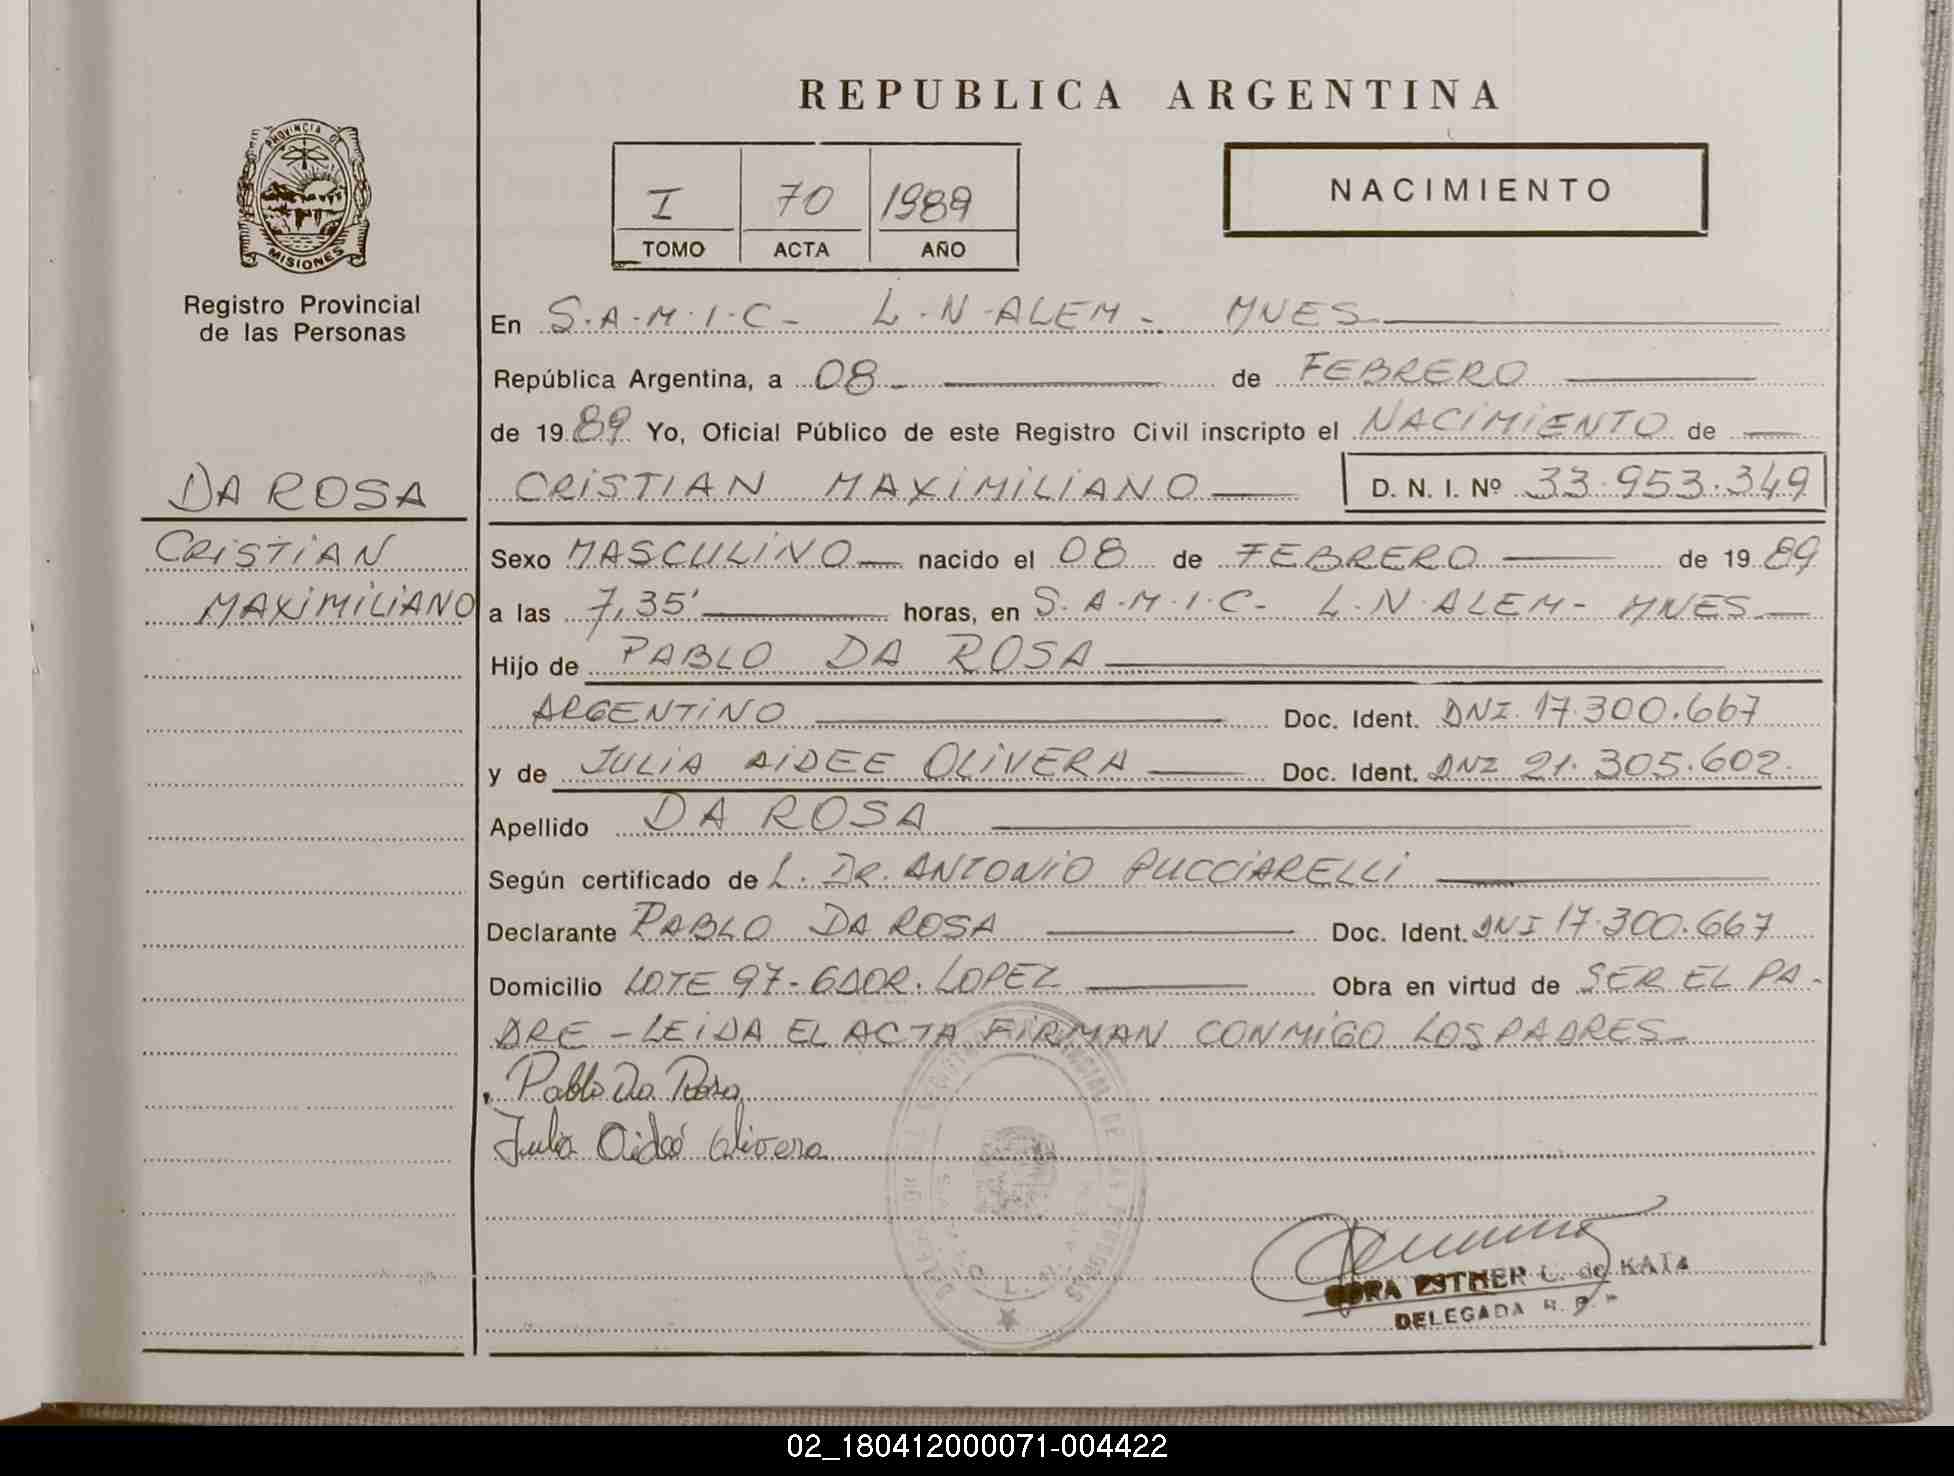 REPUBLICA ARGENTINA
PROVINCIA DE
MISIONES
Registro Provincial
de las Personas
I 70 1989
TOMO ACTA AÑO
NACIMIENTO
En S.A.M.I.C- L.N.ALEM- MNES
República Argentina, a 08 de FEBRERO
de 1989 Yo, Oficial Público de este Registro Civil inscripto el NACIMIENTO de
CRISTIAN MAXIMILIANO D. N. I. Nº 33.953.349
DA ROSA
CRISTIAN
MAXIMILIANO
Sexo MASCULINO nacido el 08 de FEBRERO de 1989
a las 7,35' horas, en S.A.M.I.C- L.N.ALEM- MNES
Hijo de PABLO DA ROSA
ARGENTINO Doc. Ident. DNI 17.300.667
y de JULIA AIDEE OLIVERA Doc. Ident. DNI 21.305.602.
Apellido DA ROSA
Según certificado de L. DR. ANTONIO PUCCIARELLI
Declarante PABLO DA ROSA Doc. Ident. DNI 17.300.667
Domicilio LOTE 97- GDOR. LOPEZ Obra en virtud de SER EL PA-
DRE - LEIDA EL ACTA FIRMAN CONMIGO LOS PADRES
Pablo Da Rosa
Julia Aideé Olivera
ESTHER L. de
DELEGADA R. P.
02_180412000071-004422